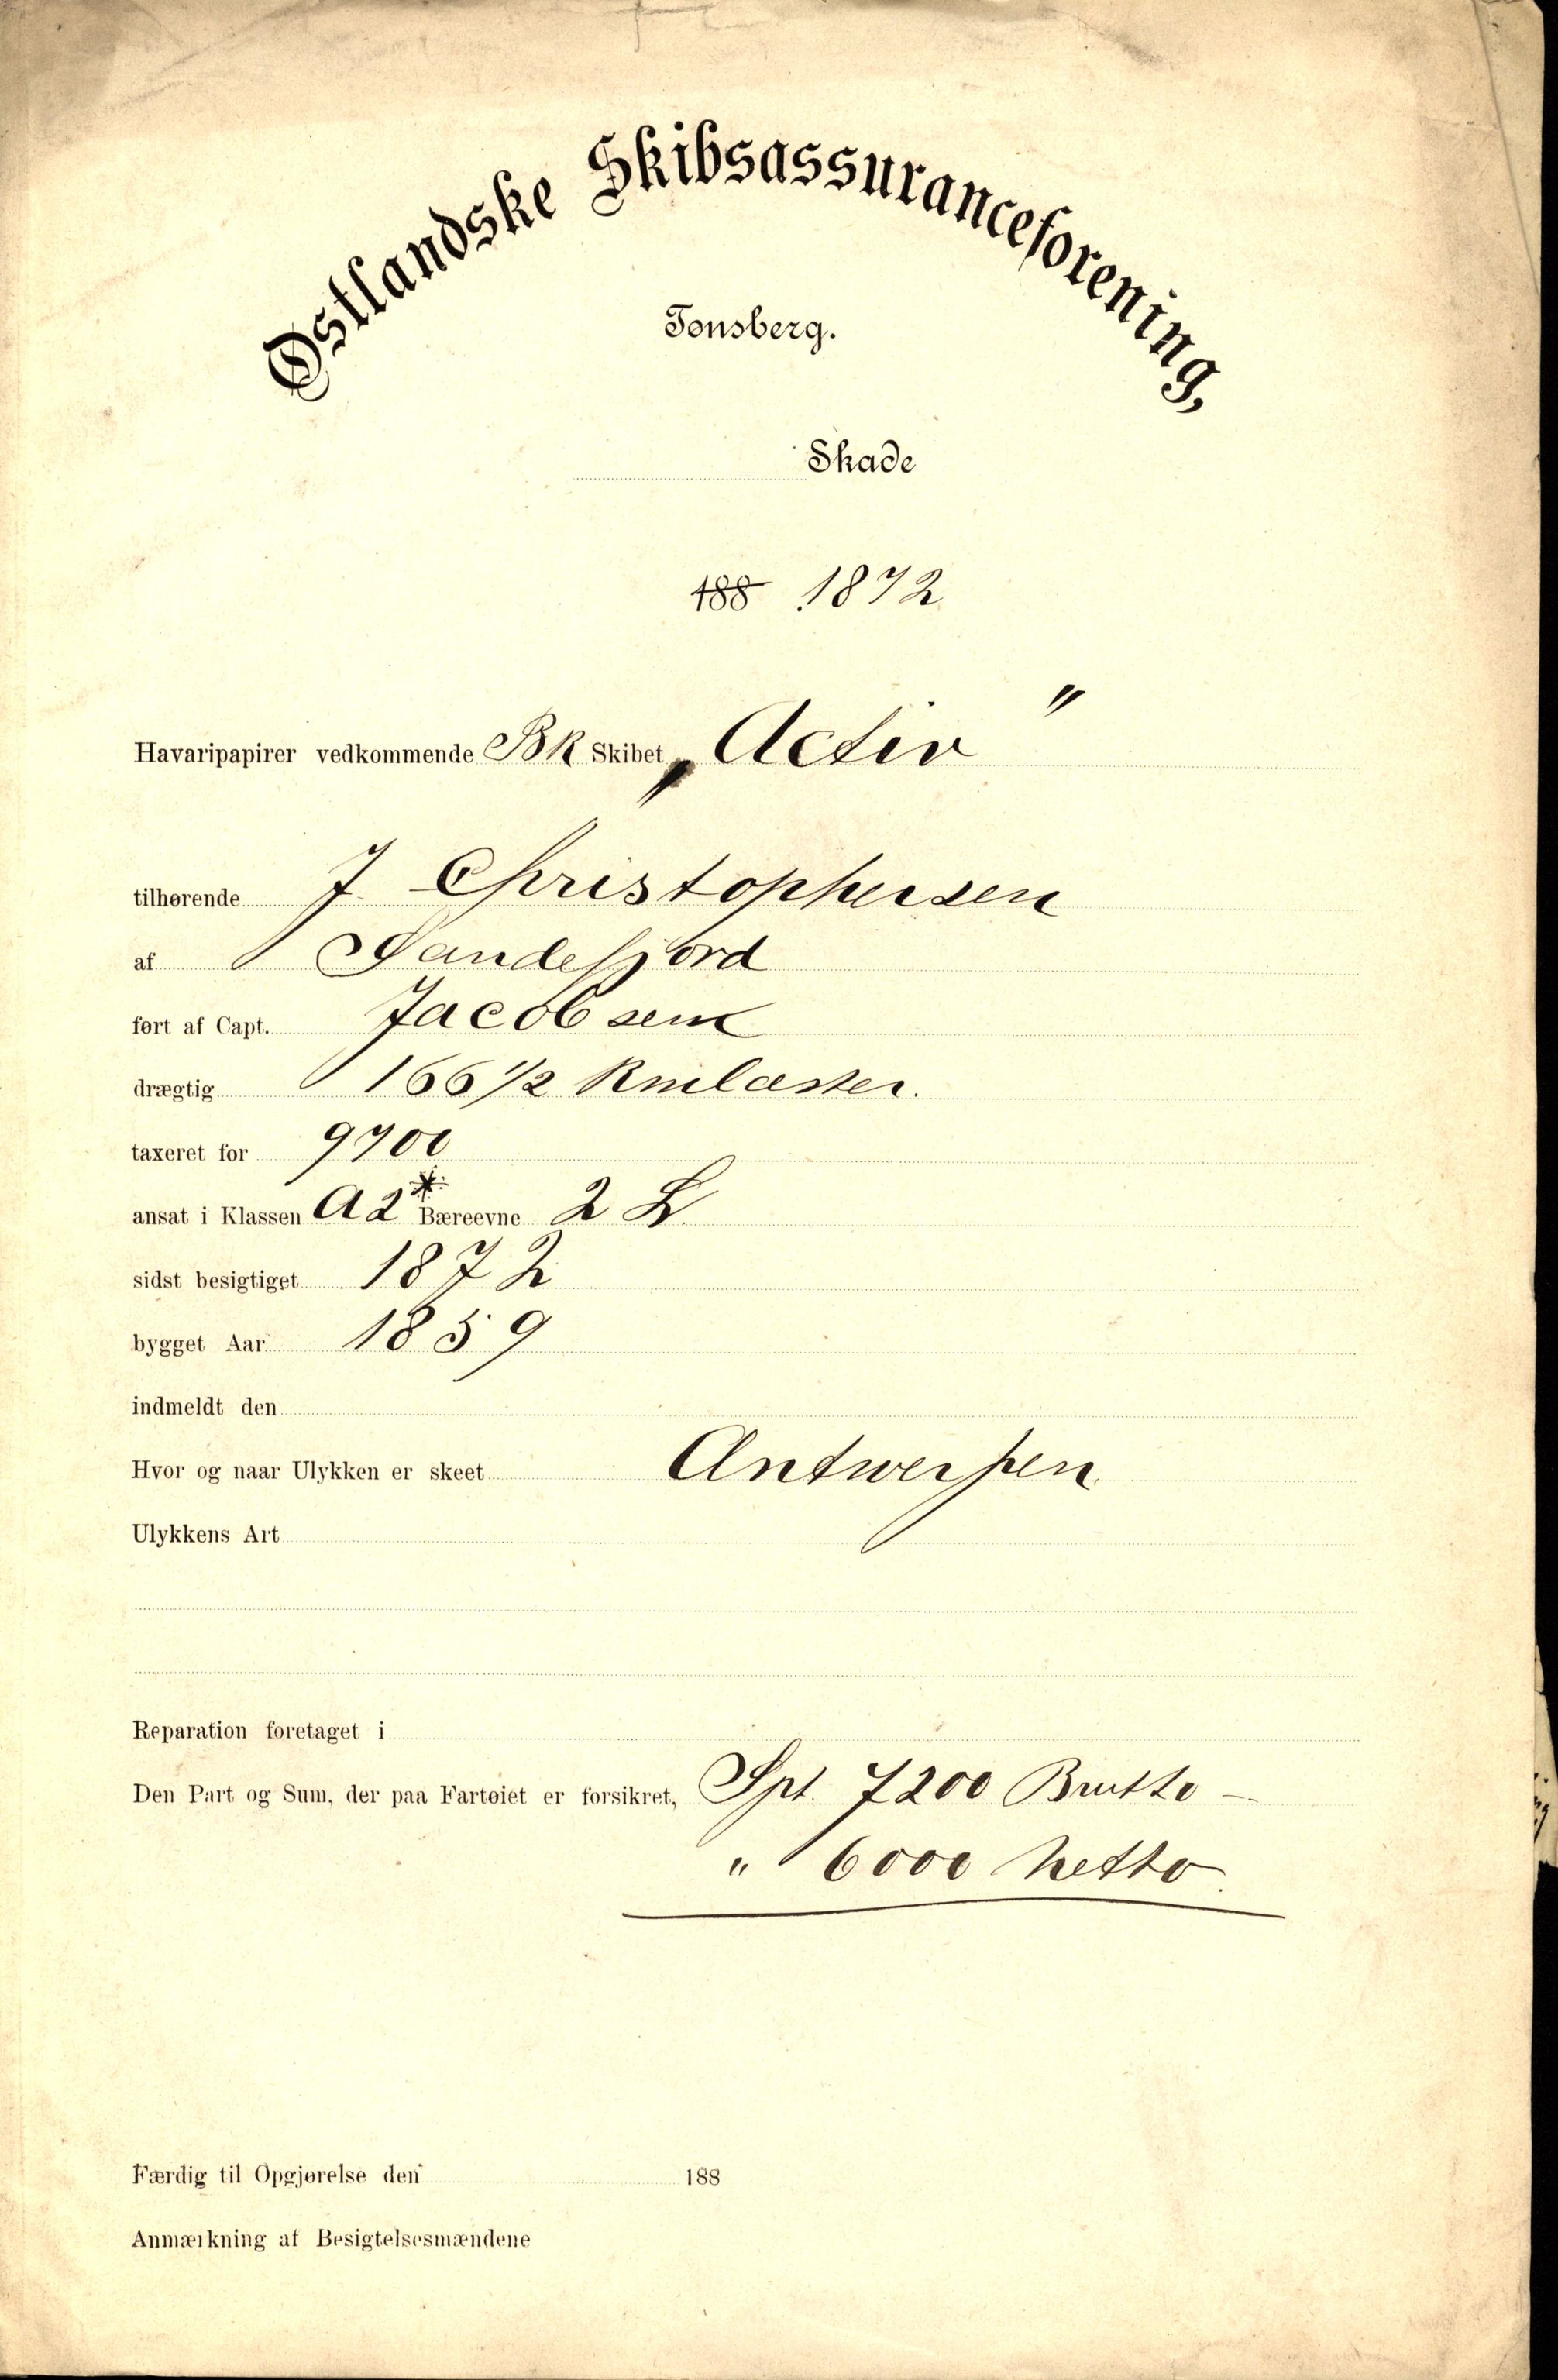 Østlandske Skibsassuranceforening,
Tønsberg.
Skade
188 1872
Havaripapirer vedkommende Bk Skibet „Activ"
tilhørende J Christophersen
af Sandefjord
ført af Capt. Jacobsen
drægtig 166 1/2 Kmlæster.
taxeret for 9700
ansat i Klassen A2* Bæreevne 2 L
sidst besigtiget 1872
bygget Aar 1859
indmeldt den
Hvor og naar Ulykken er skeet Antwerpen
Ulykkens Art
Reparation foretaget i
Den Part og Sum, der paa Fartøiet er forsikret, Spt. 7200 Brutto —
" 6000 Netto.
Færdig til Opgjørelse den 188
Anmærkning af Besigtelsesmændene